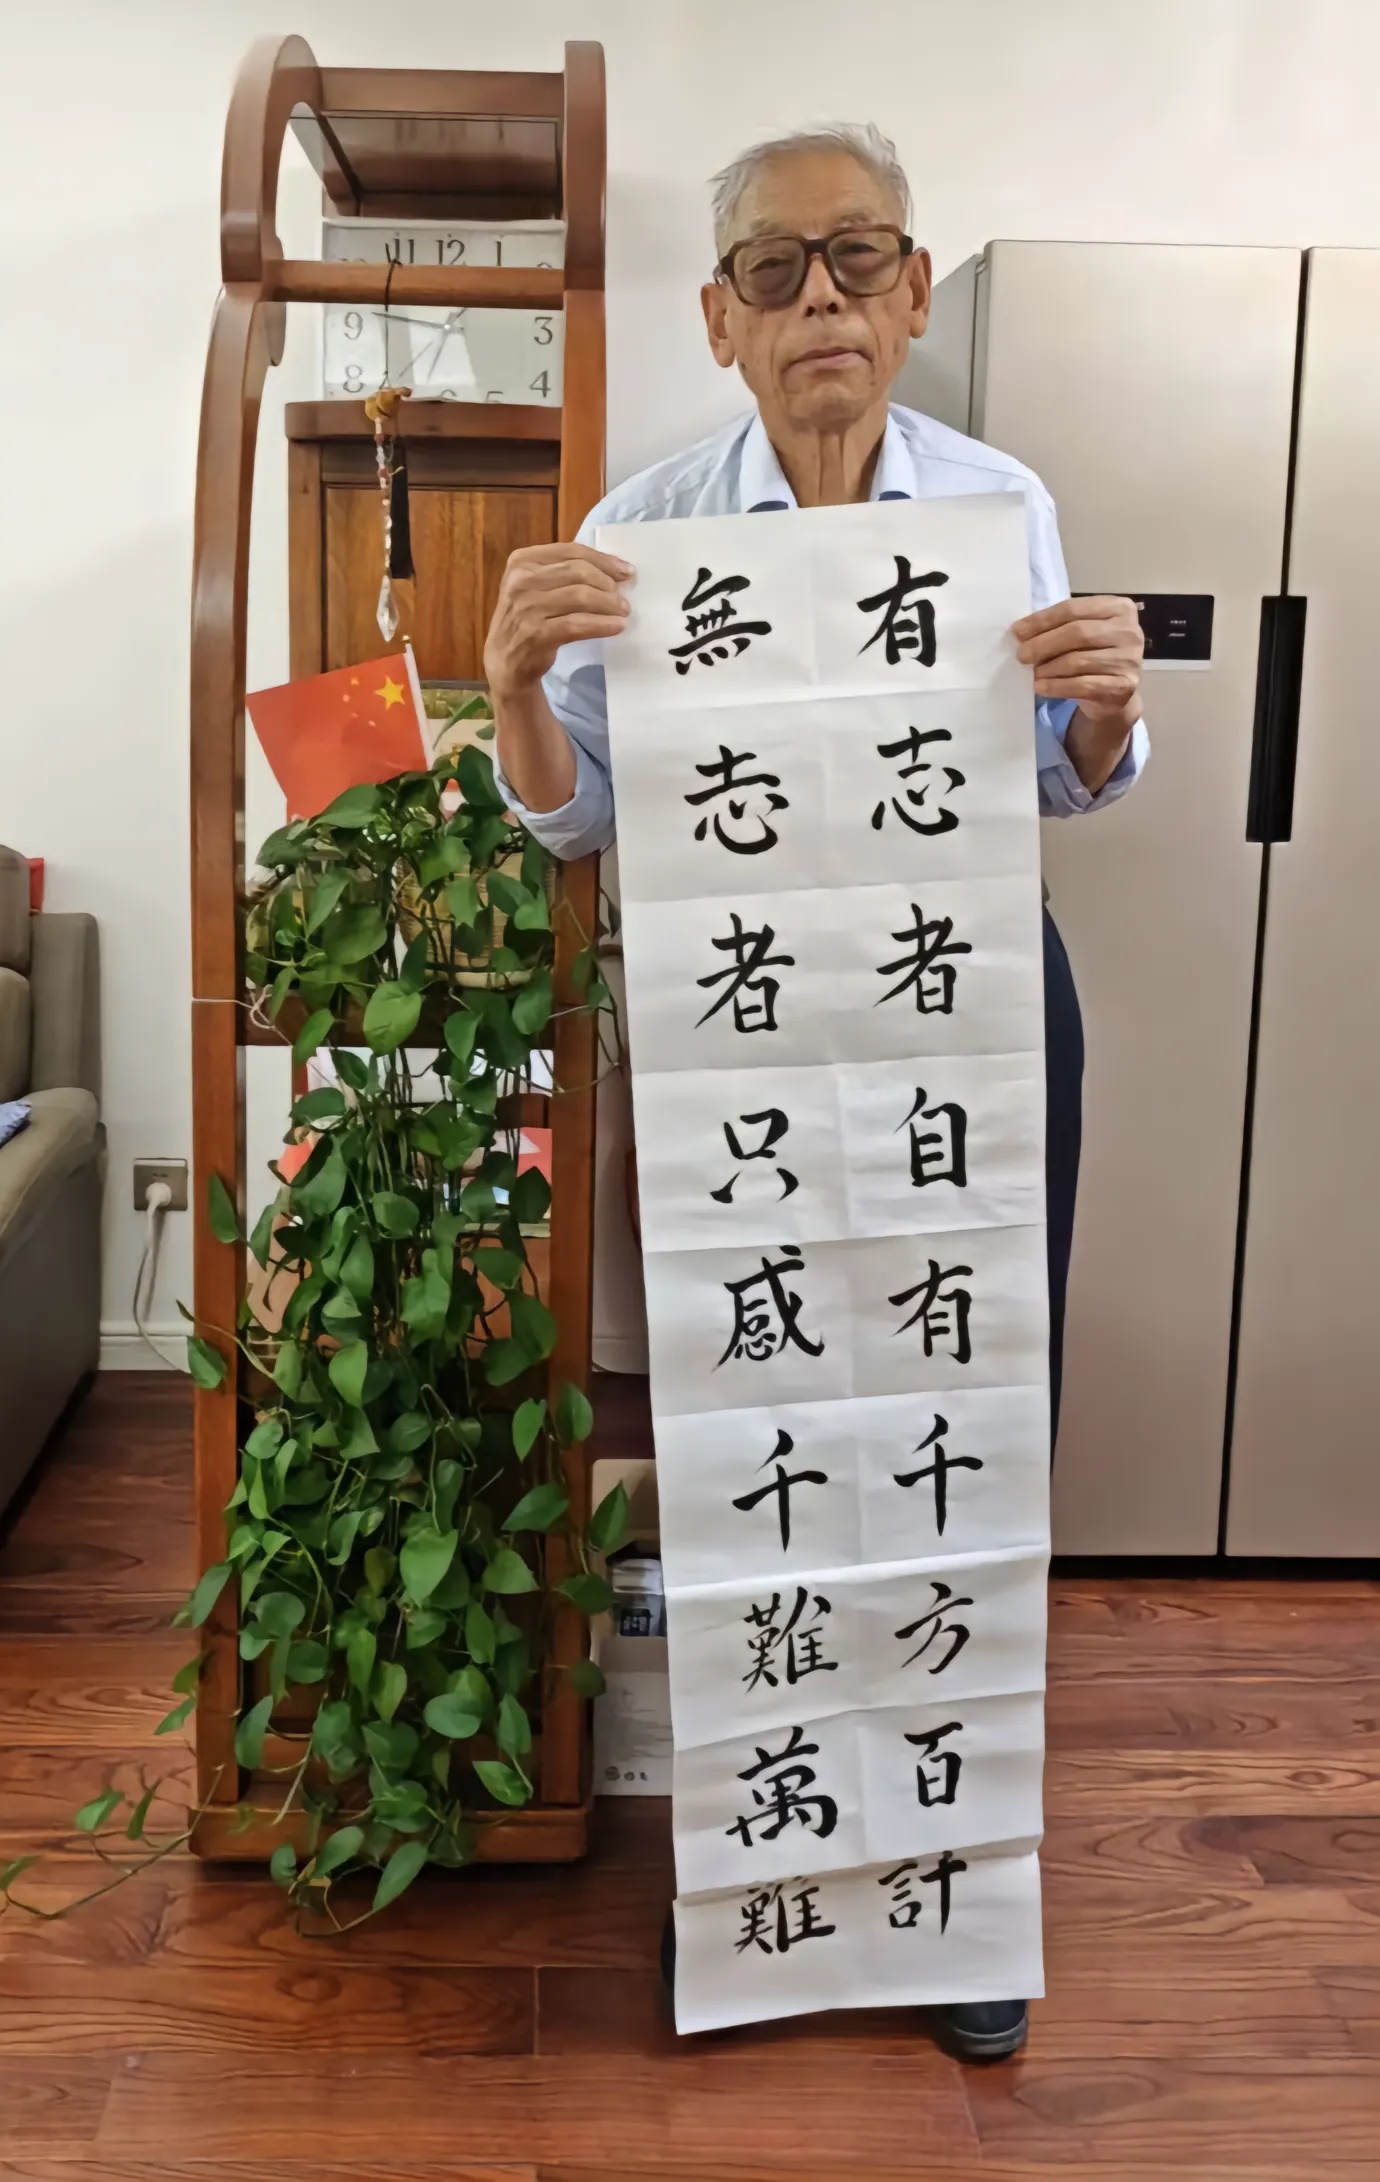 有志者自有千方百計
無志者只感千難萬難
11 12 1
9 3
8 4
6 5